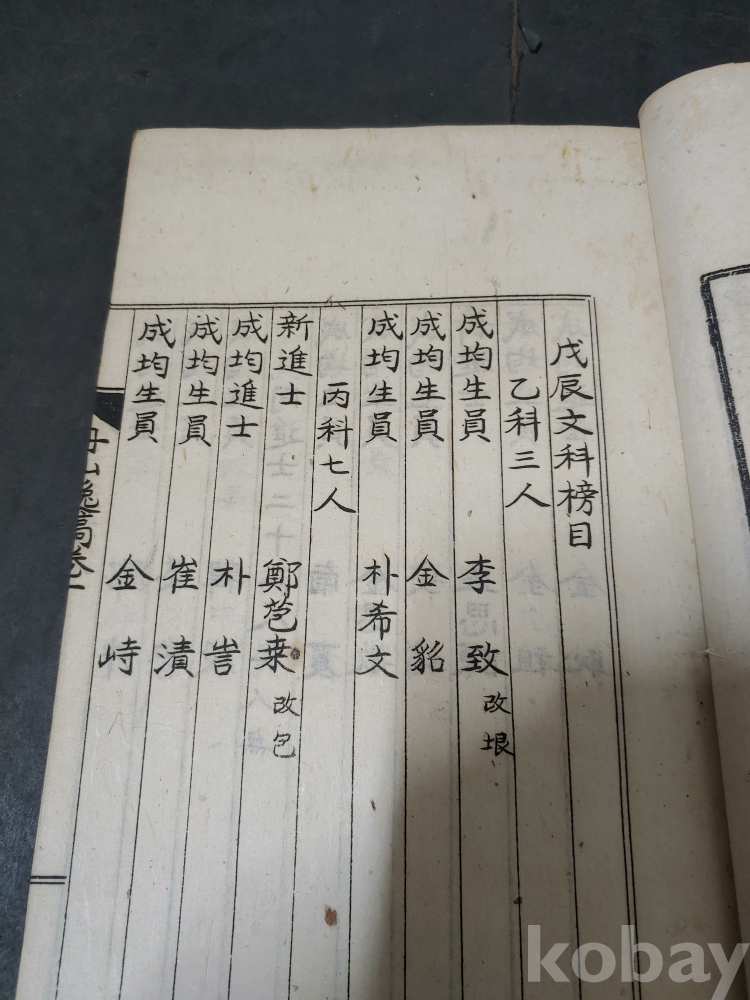 戊辰文科榜目
乙科三人
成均生員 李致 改垠
成均生員 金貂
成均生員 朴希文
丙科七人
新進士 鄭苞桒 改包
成均進士 朴訔
成均生員 崔漬
成均生員 金峙
丹山逸稿卷一
kobay